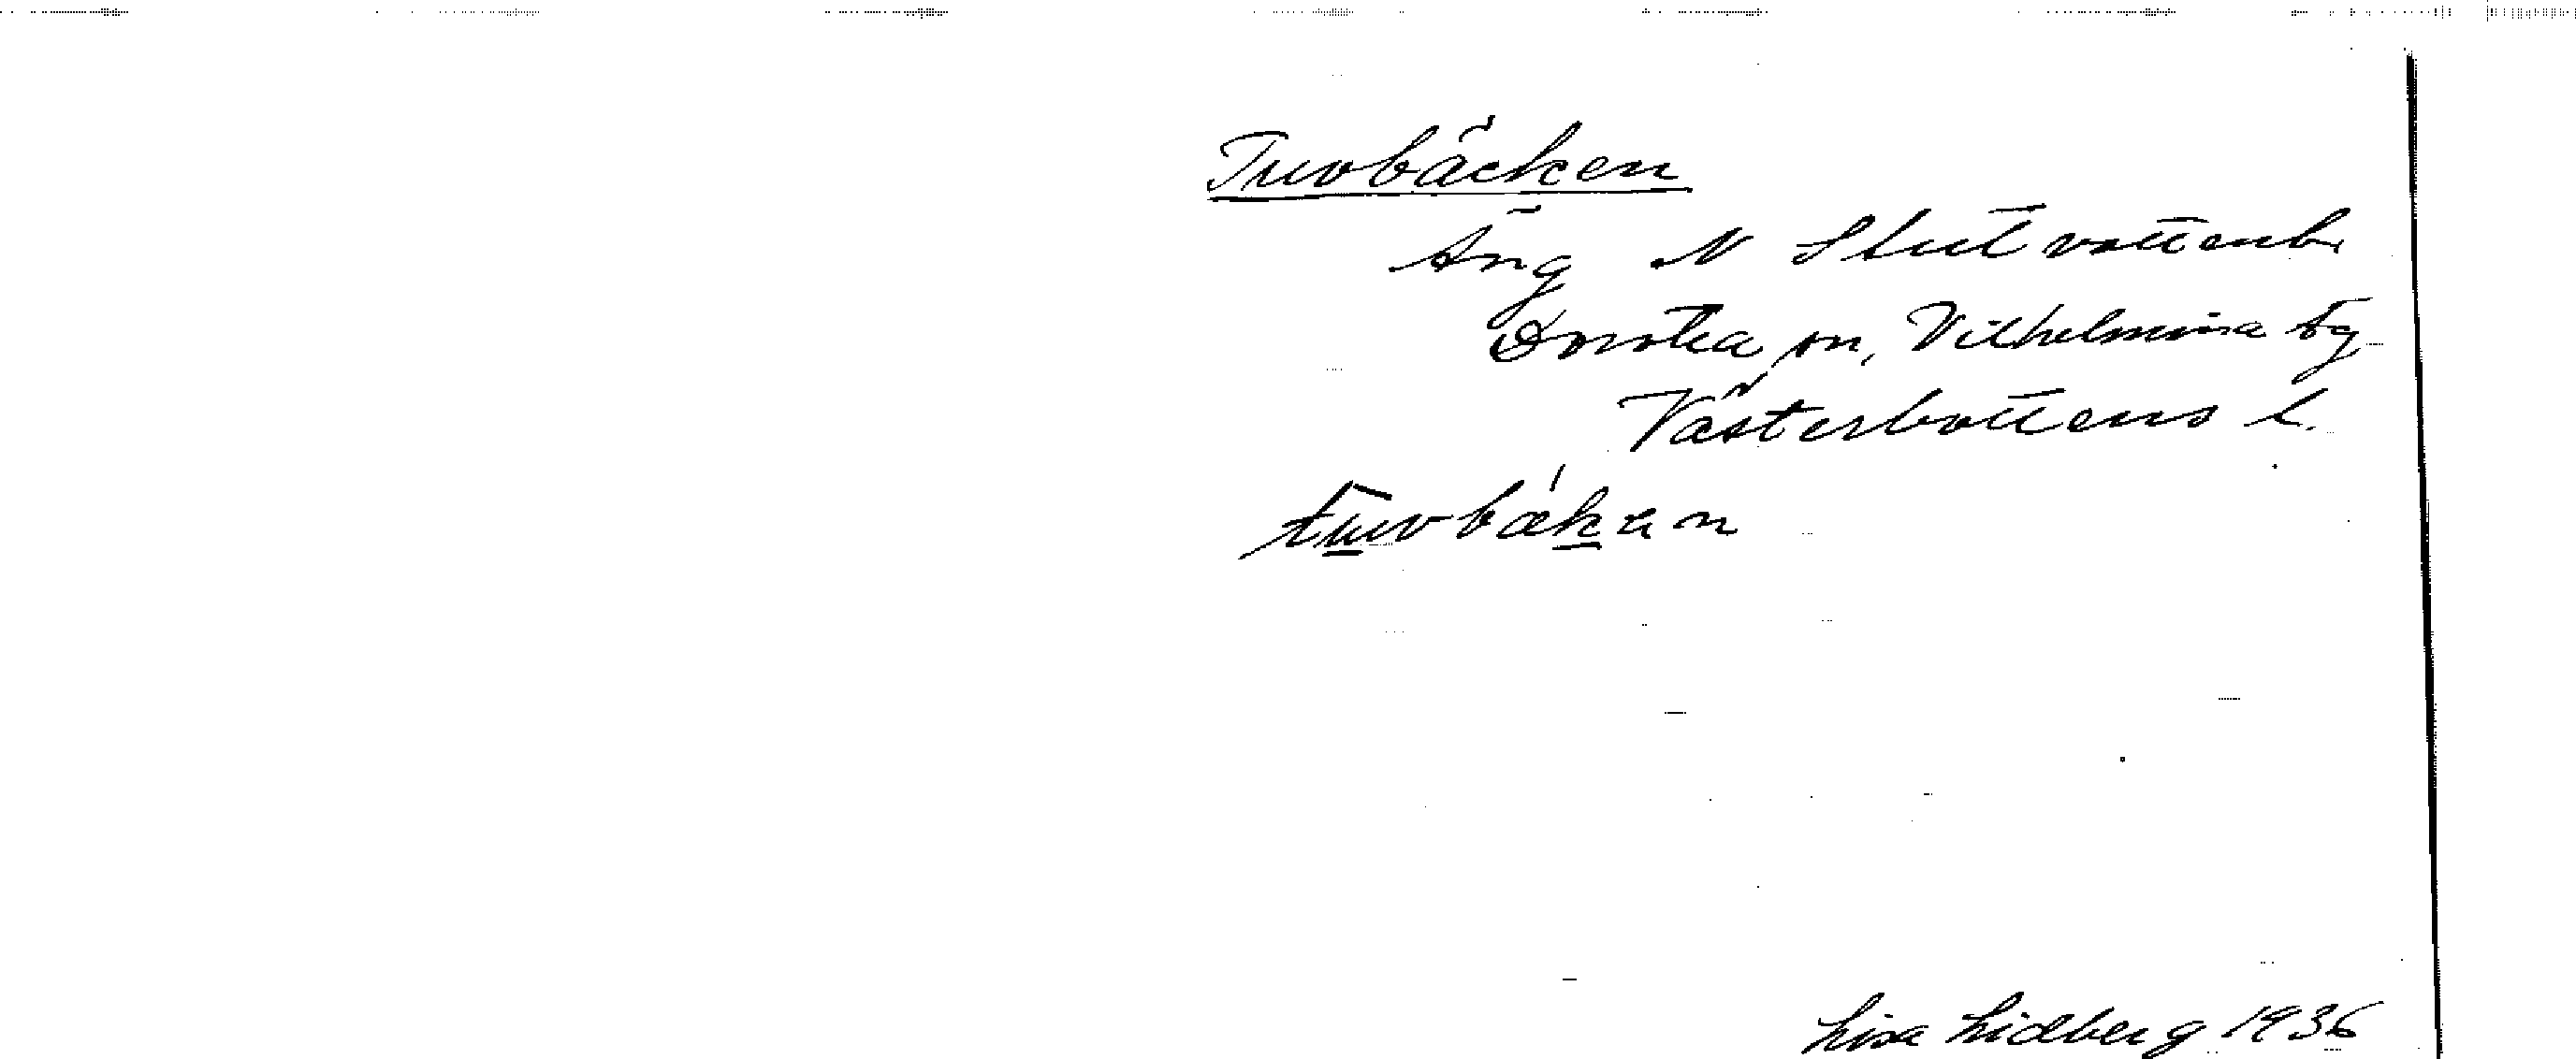 Tuvbäcken
Äng N Stutvattenb.
Dorotea sn, Vilhelmina tg
Västerbottens l.
tuvbækan
Lisa Lidberg 1936